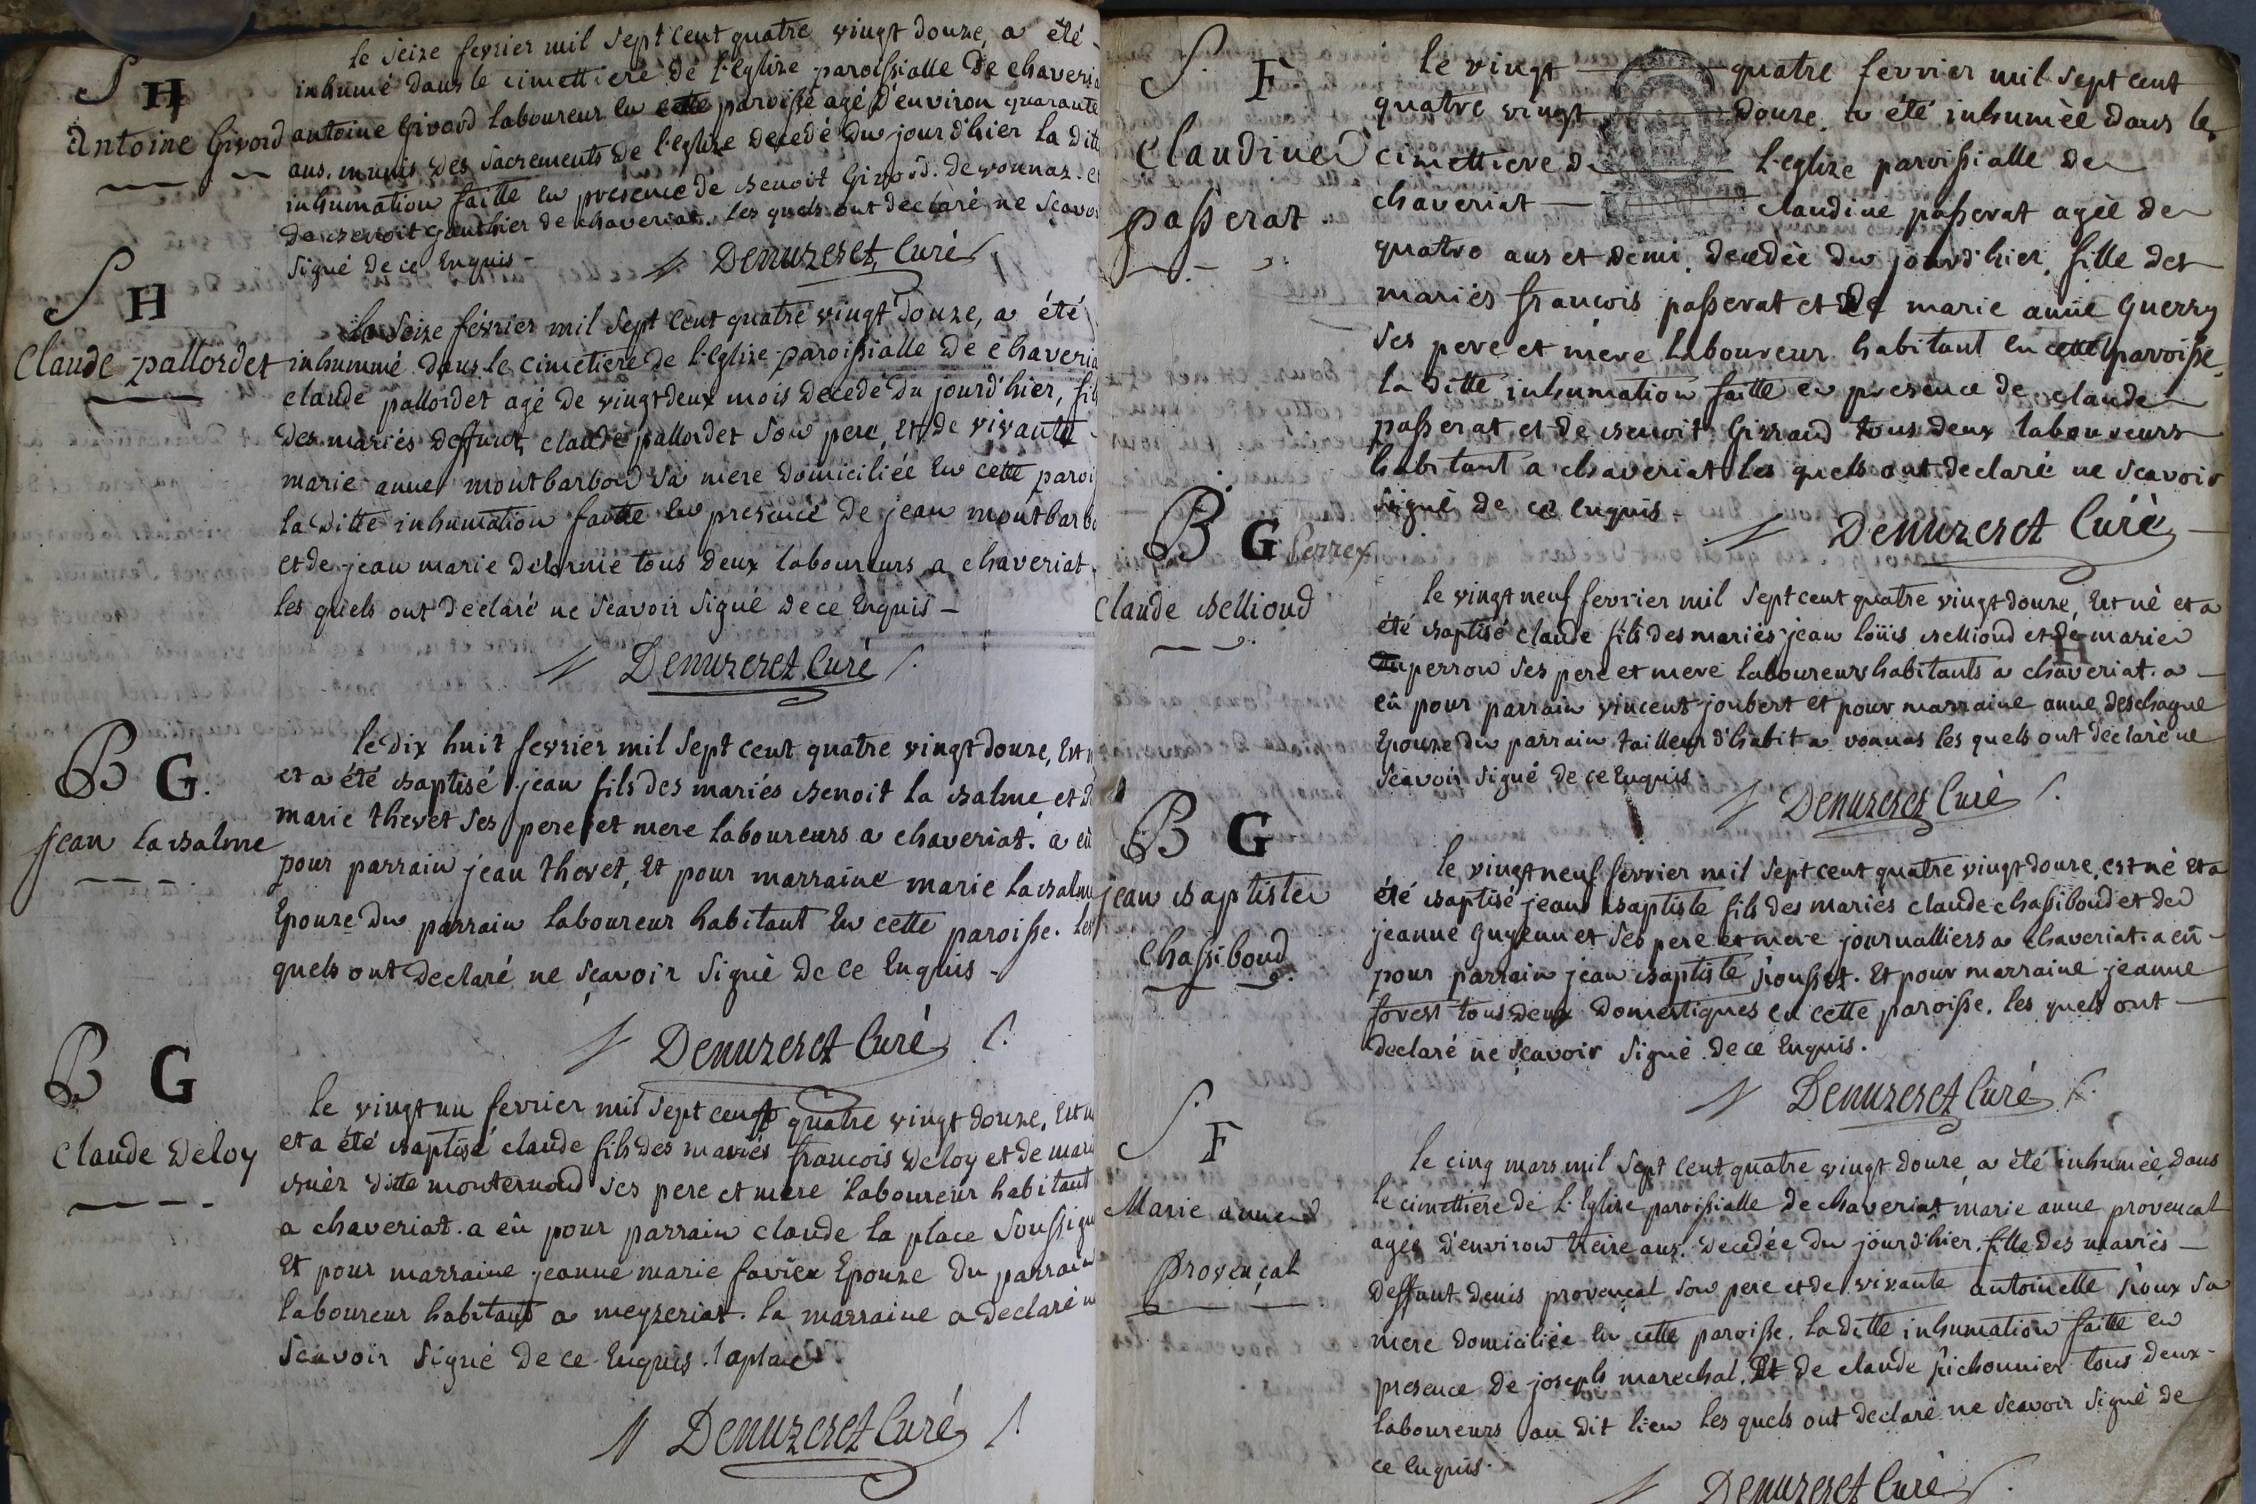 S H
Antoine Girord
le seize fevrier mil sept cent quatre vingt douze, a été
inhumé dans le cimettiere de l'Eglize paroissialle de chaveria
antoine Girord laboureur en cette paroisse agé d'environ quarante
ans. munis des sacrements de l'eglize decedé du jour d'hier la ditt
inhumation faitte en presence de Benoit Girord. de vonnaz. et
de Benoit gauthier de chaveriat. les quels ont declaré ne scavoi
signé de ce Enquis -
Denuzeret, Curé
S H
Claude pallordet
le seize février mil sept cent quatre vingt douze, a été
inhummé dans le cimetiere de l'Eglize paroissialle de chaveria
claude pallordet agé de vingt deux mois decedé du jour d'hier, fil
des mariés deffunt claude pallordet son pere, et de vivante
marie anne montbarbon sa mere domiciliée en cette paroi
la ditte inhumation faitte en presence de jean montbarbo
et de jean marie delorme tous deux laboureurs a chaveriat.
les quels ont declaré ne scavoir signé de ce Enquis -
Denuzeret, Curé
B G.
jean la Balme
le dix huit fevrier mil sept cent quatre vingt douze, Est n
et a été Baptisé jean fils des mariés Benoit la Balme et d
marie thevet ses pere et mere laboureurs a chaveriat. a eû
pour parrain jean thevet, Et pour marraine marie la Balme
Epouze du parrain laboureur habitant en cette paroisse. les
quels ont declaré ne scavoir signé de ce Enquis -
Denuzeret Curé
B G
Claude Deloy
le vingt un fevrier mil sept cent quatre vingt douze, Est n
et a été Baptisé claude fils des mariés françois Deloy et de mari
ditte monternod ses pere et mere laboureur habitant
a chaveriat. a eû pour parrain claude la place soussigné
Et pour marraine jeanne marie favier Epouze du parrain
laboureur habitant a meyzeriat. la marraine a declaré n
scavoir signé de ce Enquis. laplace
Denuzeret Curé
S. F
Claudine
passerat
le vingt quatre fevrier mil sept cent
quatre vingt douze, a été inhumèe dans le
cimettiere de l'Eglize paroissialle de
chaveriat claudine passerat agèe de
quatre ans et demi. decedèe du jourd'hier, fille des
mariés françois passerat et de marie anne Guerry
ses pere et mere laboureur habitant en cette paroisse.
la ditte inhumation faitte en presence de claude
passerat et de Benoit Girraud tous deux laboureurs
habitant a chaveriat les quels ont declaré ne scavoir
signé de ce enquis -
Denuzeret Curé
B G perrex
Claude Bellioud
le vingt neuf fevrier mil sept cent quatre vingt douze, Est nè et a
été Baptisé claude fils des mariés jean loüis Bellioud et de marie
Duperron ses pere et mere laboureurs habitants a chaveriat. a
eû pour parrain vincent joubert et pour marraine anne deschagne
Epouze du parrain tailleur d'habit a vonnas les quels ont declarè ne
scavoir signé de ce Enquis.
Denuzeret Curé
B G
jean Baptiste
Chassiboud
le vingt neuf fevrier mil sept cent quatre vingt douze, est né et a
été Baptisé jean Baptiste fils des mariés claude chassiboud et de
jeanne Guyennet ses pere et mere journalliers a chaveriat. a eû
pour parrain jean Baptiste Rousset. Et pour marraine jeanne
forest tous deux domestiques en cette paroisse. les quels ont
declaré ne scavoir signé de ce Enquis.
Denuzeret Curé
S. F
Marie anne
provençal
le cinq mars mil sept cent quatre vingt douze a été inhumée dans
le cimettiere de l'Eglize paroissialle de chaveriat marie anne provençal
agée d'environ treize ans. decedée du jour d'hier. fille des mariés
deffunt denis provençal son pere et de vivante antoinette Rioux sa
mere domiciliée en cette paroisse. la ditte inhumation faitte en
presence de joseph marechal. Et de claude pichonnier tous deux
laboureurs au dit lieu les quels ont declaré ne scavoir signé de
ce Enquis.
Denuzeret Curé